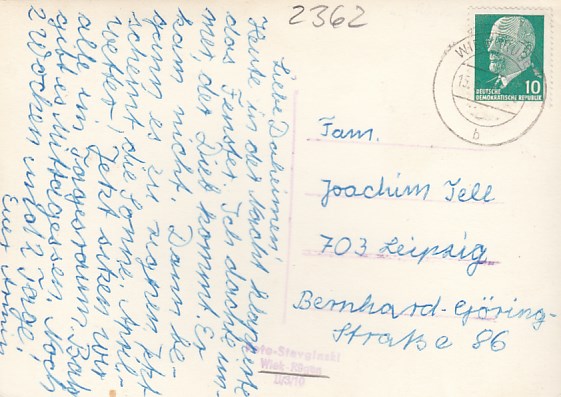 2362
Liebe Daheimen!
Heute in der Nacht klapperte
das Fenster. Ich dachte im-
mer, der Dieb kommt. Er
kam nicht. Dann be-
gann es zu regnen. Jetzt
scheint die Sonne. April-
wetter! Jetzt sitzen wir
alle im Tagesraum. Bald
gibt es Mittagessen. Noch
2 Wochen und 2 Tage!
Euer
10
DEUTSCHE
DEMOKRATISCHE REPUBLIK
b
Fam.
Joachim Tell
703 Leipzig
Bernhard-Göring-
Straße 86
Foto-Stavginski
Wiek Rügen